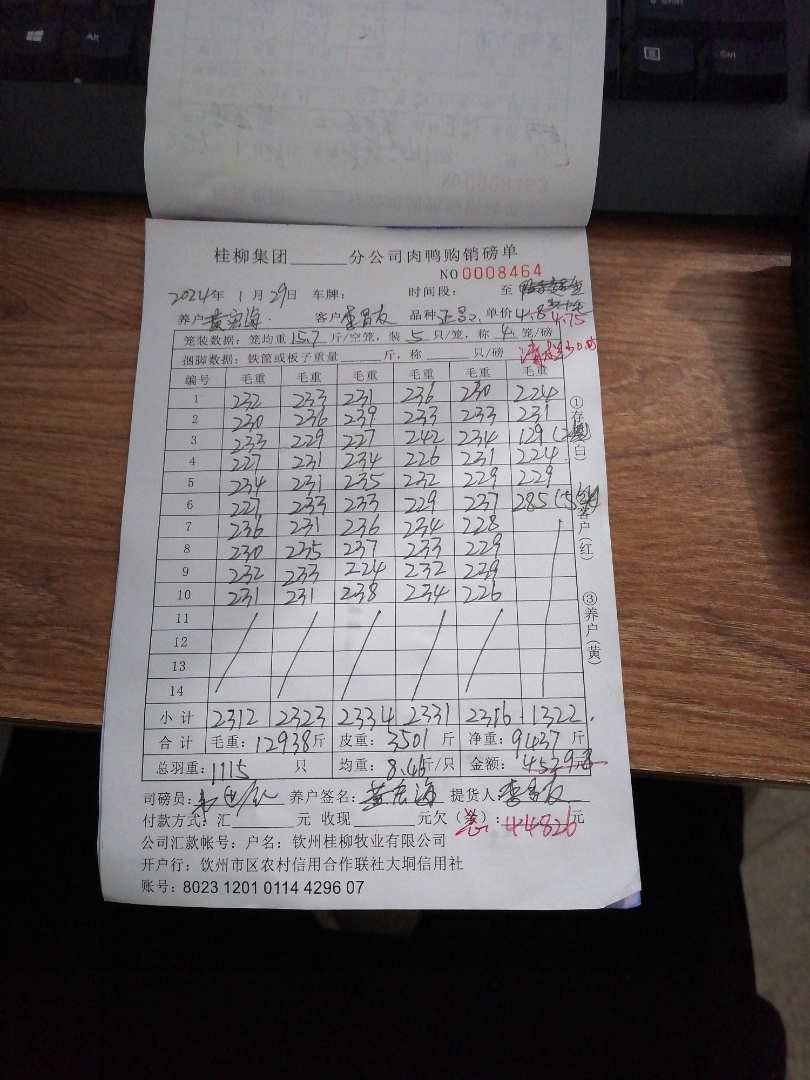 桂柳集团______分公司肉鸭购销磅单
NO 0008464
2024年 1月29日 车牌： 时间段： 至
养户 黄宏海 客户 品种 正品 单价 4.8 4.75
笼装数据：笼均重 15.7 斤/空笼，装 5 只/笼，称 4 笼/磅
捆脚数据：铁篮或板子重量______斤，称______只/磅
编号 毛重 毛重 毛重 毛重 毛重 毛重
1 232 233 231 236 230 224
2 230 236 239 233 233 231
3 233 229 227 242 234 129
4 227 231 234 226 231 224
5 234 231 235 232 229 229
6 227 233 233 229 237 285
7 236 231 236 234 228
8 230 235 237 233 229
9 232 233 224 232 239
10 231 231 238 234 226
11
12
13
14
小计 2312 2323 2334 2331 2316 1322
合计 毛重：12938斤 皮重：3501斤 净重：9437斤
总羽重：1115 只 均重：8.46斤/只 金额：
司磅员： 养户签名：黄宏海 提货人：
付款方式：汇______元 收现______元欠（）：44826元
公司汇款帐号：户名：钦州桂柳牧业有限公司
开户行：钦州市区农村信用合作联社大垌信用社
账号：8023 1201 0114 4296 07
①存（白）
客户（红）
③养户（黄）
Alt
Ctrl